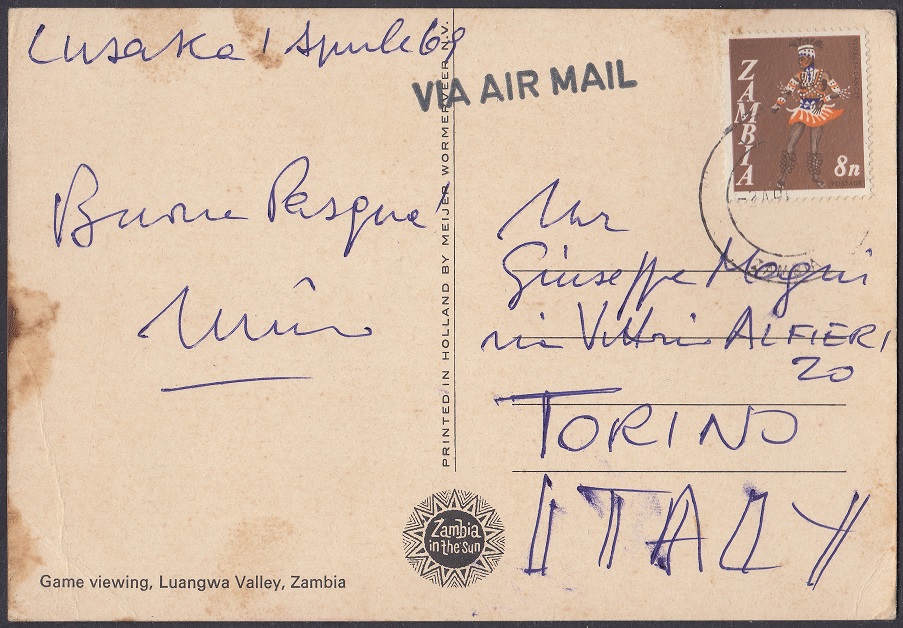 Lusaka 1 Aprile 69
VIA AIR MAIL
ZAMBIA
8n
Buona Pasqua
PRINTED IN HOLLAND BY MEIJER WORMERVEER N.V.
Giuseppe
via Vittorio ALFIERI
20
TORINO
ITALY
Zambia
in the sun
Game viewing, Luangwa Valley, Zambia